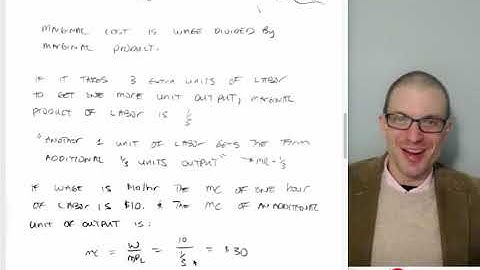 MARGINAL COST IS WAGE DIVIDED BY
MARGINAL PRODUCT.
IF IT TAKES 3 EXTRA UNITS OF LABOR
TO GET ONE MORE UNIT OUTPUT, MARGINAL
PRODUCT OF LABOR IS 1/3
"ANOTHER 1 UNIT OF LABOR GETS THE FIRM
ADDITIONAL 1/3 UNITS OUTPUT"
IF WAGE IS $10/HR THE MC OF ONE HOUR
OF LABOR IS $10. THE MC OF AN ADDITIONAL
UNIT OF OUTPUT IS:
MC = W/MPL = 10/(1/3) = $30